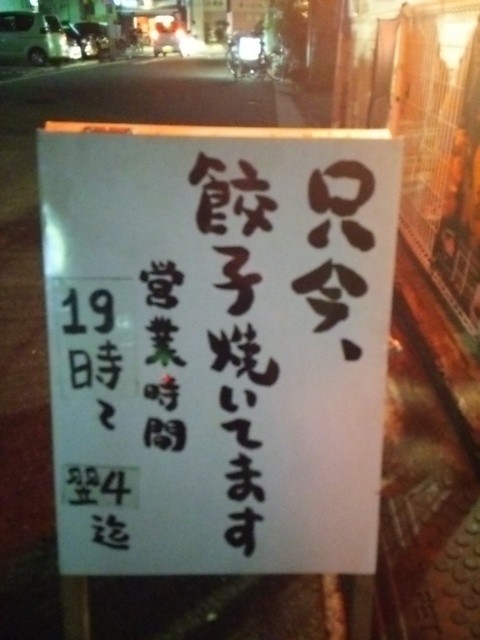 只今、
餃子焼いてます
営業時間
19時~
翌4迄